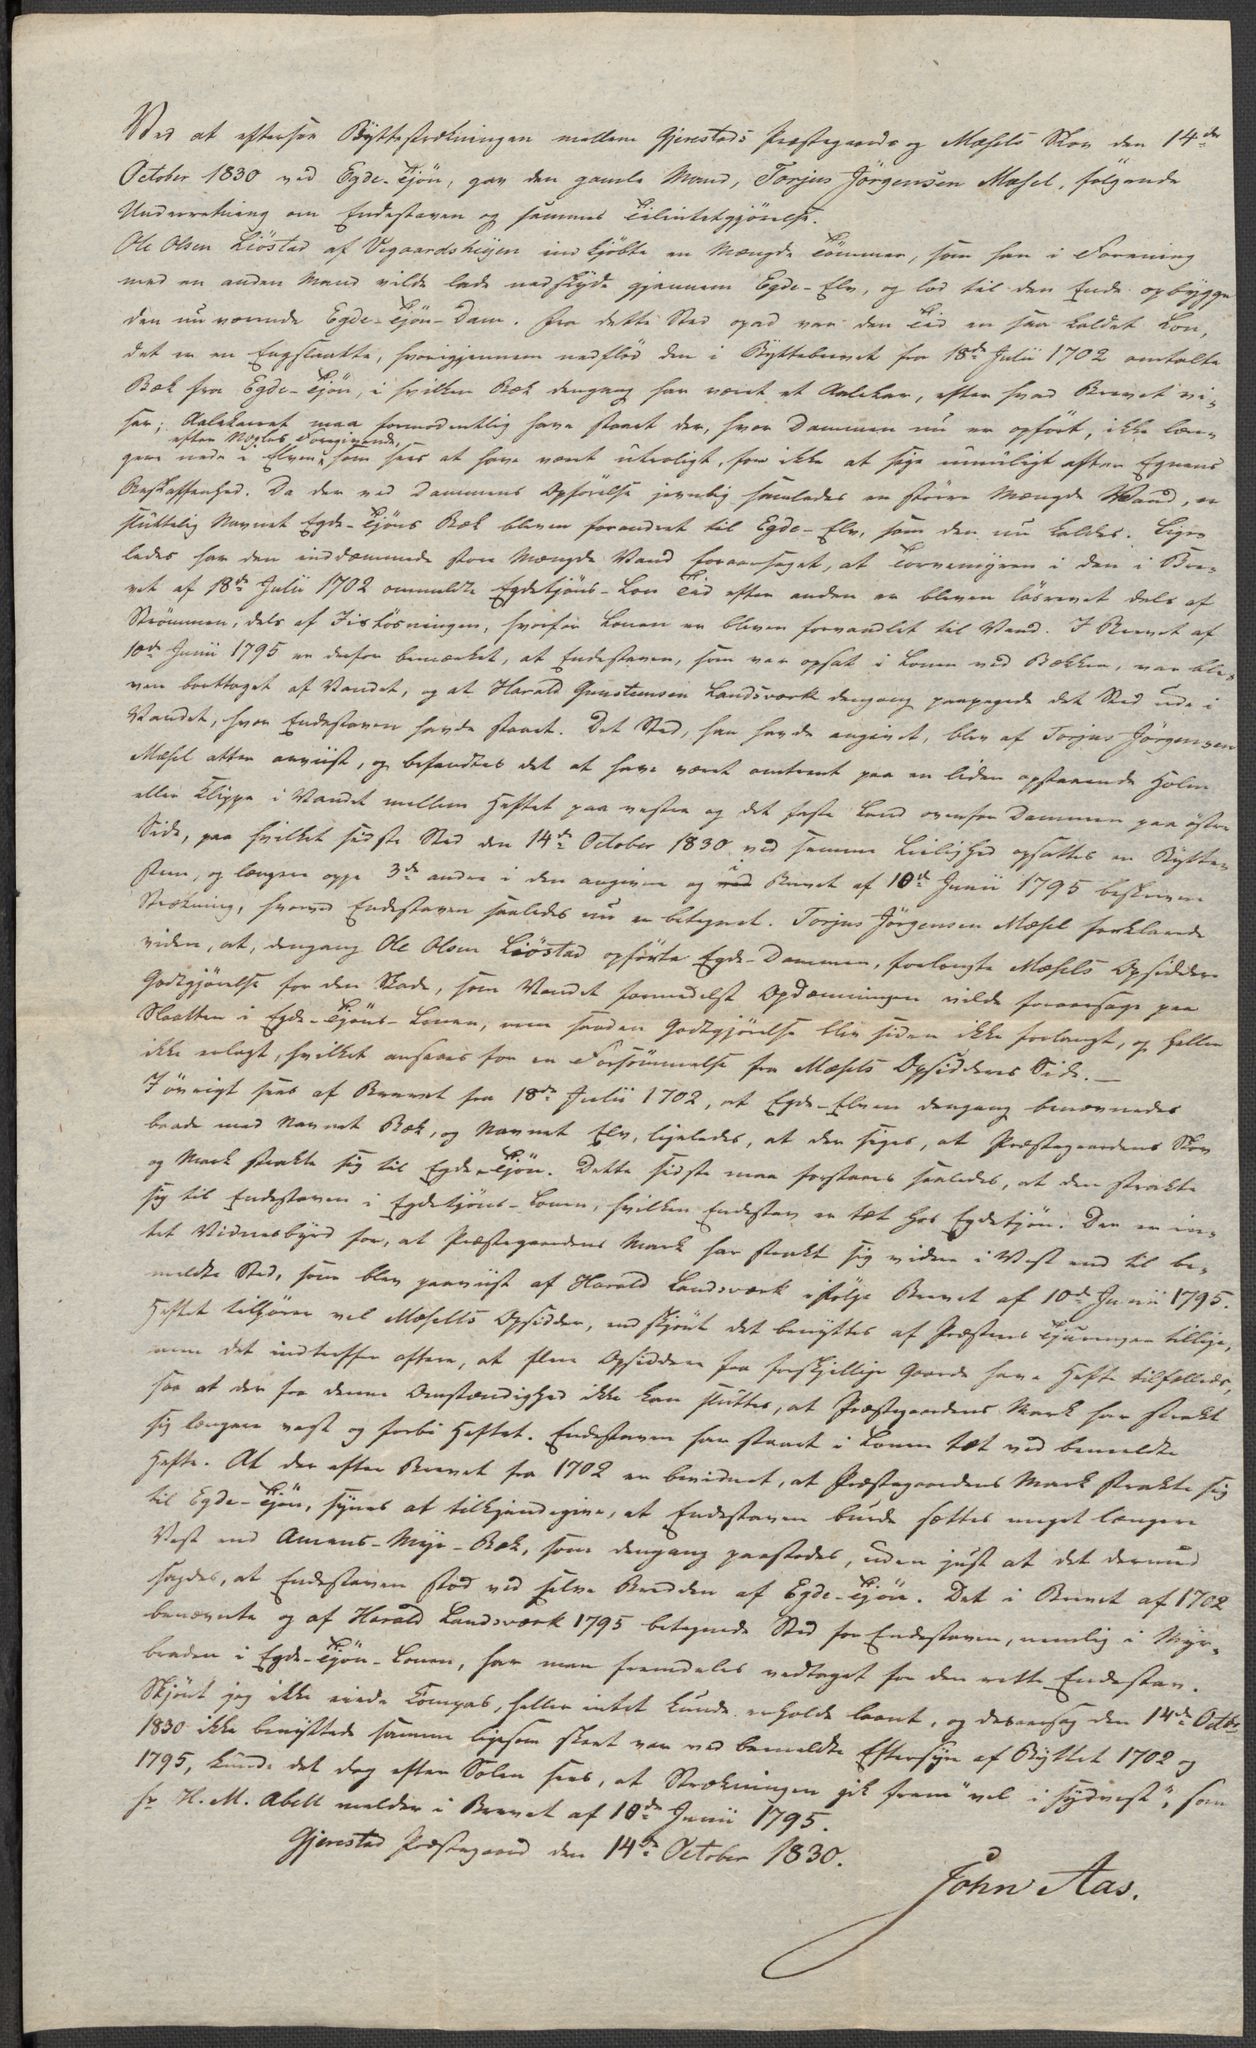 Ved at eftersee Byttestrækningen mellem Gjerestads Præstegaards og Mæsels Skov den 14de
October 1830 ved Egde-Tjön, gav den gamle Mand, Torjus Jörgensen Mæsel, følgende
Underretning om Endestaven og sammes Tilintetgjörelse.
Ole Olsen Liöstad af Vegaardsheijen indkjöbte en Mængde Tömmer, som han i Forening
med en anden Mand vilde lade nedskyde gjennem Egde-Elv, og lod til den Ende opbygge
den nu værende Egde-Tjön-Dam. Fra dette Sted opad var den Tid en saa kaldet Lon,
det er en Engslaatte, hvorigjennem nedflöd den i Byttebrevet fra 18de Julii 1702 omtalte
Bæk fra Egde-Tjön, i hvilken Bæk dengang har været et Aalekar, efter hvad Brevet vi-
ser; Aalekarret maa formodentlig have staaet der, hvor Dammen nu er opfört, ikke læn-
efter Nogles Foregivende,
gere nede i Elven, som sees at have været utroligt, for ikke at sige umuligt efter Egnens
Beskaffenhed. Da der ved Dammens Opförelse jevnlig samledes en större Mængde Vand, er
sluttelig Navnet Egde-Tjöns Bæk bleven forandret til Egde-Elv, som den nu kaldes. Lige-
ledes har den inddæmmede store Mængde Vand foraarsaget, at Torvemyren i den i Bre-
vet af 18de Julii 1702 ommeldte Egdetjöns-Lon Tid efter anden er bleven lösrevet dels af
Strömmen, dels af Iislösningen, hvorfor Lonen er bleven forvandlet til Vand. I Brevet af
10de Junii 1795 er derfor bemærket, at Endestaven, som var opsat i Lonen ved Bækken, var ble-
ven borttaget af Vandet, og at Harald Gunstensen Landsværk dengang paapegede det Sted ude i
Vandet, hvor Endestaven havde staaet. Det Sted, han havde angivet, blev af Torjus Jörgensen
Mæsel atter anviist, og befandtes det at have været omtrent paa en liden opstaaende Holm
eller Klippe i Vandet mellem Heftet paa vestre og det faste Land ovenfor Dammen paa östre
Side, paa hvilket sidste Sted den 14de October 1830 ved samme Leilighed opsattes en Bytte-
steen, og længere oppe 3de andre i den angivne og i Brevet af 10de Junii 1795 beskrevne
Strækning, hvorved Endestaven saaledes nu er betegnet. Torjus Jörgensen Mæsel forklarede
videre, at, dengang Ole Olsen Liöstad opförte Egde-Dammen, forlangte Mæsels Opsiddere
Godtgjörelse for den Skade, som Vandet formedelst Opdæmningen vilde foraarsage paa
Slaatten i Egde-Tjöns-Lonen, men saadan Godtgjörelse blev siden ikke forlangt, og heller
ikke erlagt, hvilket ansees for en Forsömmelse fra Mæsels Opsidderes Side. —
I övrigt sees af Brevet fra 18de Julii 1702, at Egde-Elven dengang benævnedes
baade med Navnet Bæk, og Navnet Elv, ligeledes, at der siges, at Præstegaardens Skov
og Mark strakte sig til Egde-Tjön. Dette sidste maa forstaaes saaledes, at den strakte
sig til Endestaven i Egdetjöns-Lonen, hvilken Endestav er tæt hos Egdetjön. Der er in-
tet Vidnesbyrd for, at Præstegaardens Mark har strakt sig videre i Vest end til be-
meldte Sted, som blev paaviist af Harald Landsværk ifölge Brevet af 10de Junii 1795.
Heftet tilhörer vel Mæsels Opsidder, endskjönt det benyttes af Præstens Tjuringer tillige,
men det indtreffer oftere, at flere Opsiddere fra forskjellige Gaarde have Hefte tilfælleds,
saa at der fra denne Omstændighed ikke kan sluttes, at Præstegaardens Mark har strakt
sig længere vest og forbi Heftet. Endestaven har staaet i Lonen tæt ved bemeldte
Hefte. At der efter Brevet fra 1702 er bevidnet, at Præstegaardens Mark strakte sig
til Egde-Tjön, synes at tilkjendegive, at Endestaven burde sættes meget længere
Vest end Amens-Myr-Bæk, som dengang paastodes, uden just at det dermed
sagdes, at Endestaven stod ved selve Bredden af Egde-Tjön. Det i Brevet af 1702
benævnte og af Harald Landsværk 1795 betegnede Sted for Endestaven, nemlig i Myr-
braden i Egde-Tjön-Lonen, har man fremdeles vedtaget for den rette Endestav.
Skjönt jeg ikke eiede Compas, heller intet kunde erholde laant, og desaarsag den 14de Octbr
1830 ikke benyttede samme ligesom skeet var ved bemeldte Eftersyn af Byttet 1702 og
1795, kunde det dog efter Solen sees, at Strækningen gik frem "vel i sydvest", som
Hr H. M. Abell melder i Brevet af 10de Junii 1795.
Gjerestad Præstegaard den 14de October 1830.
John Aas.